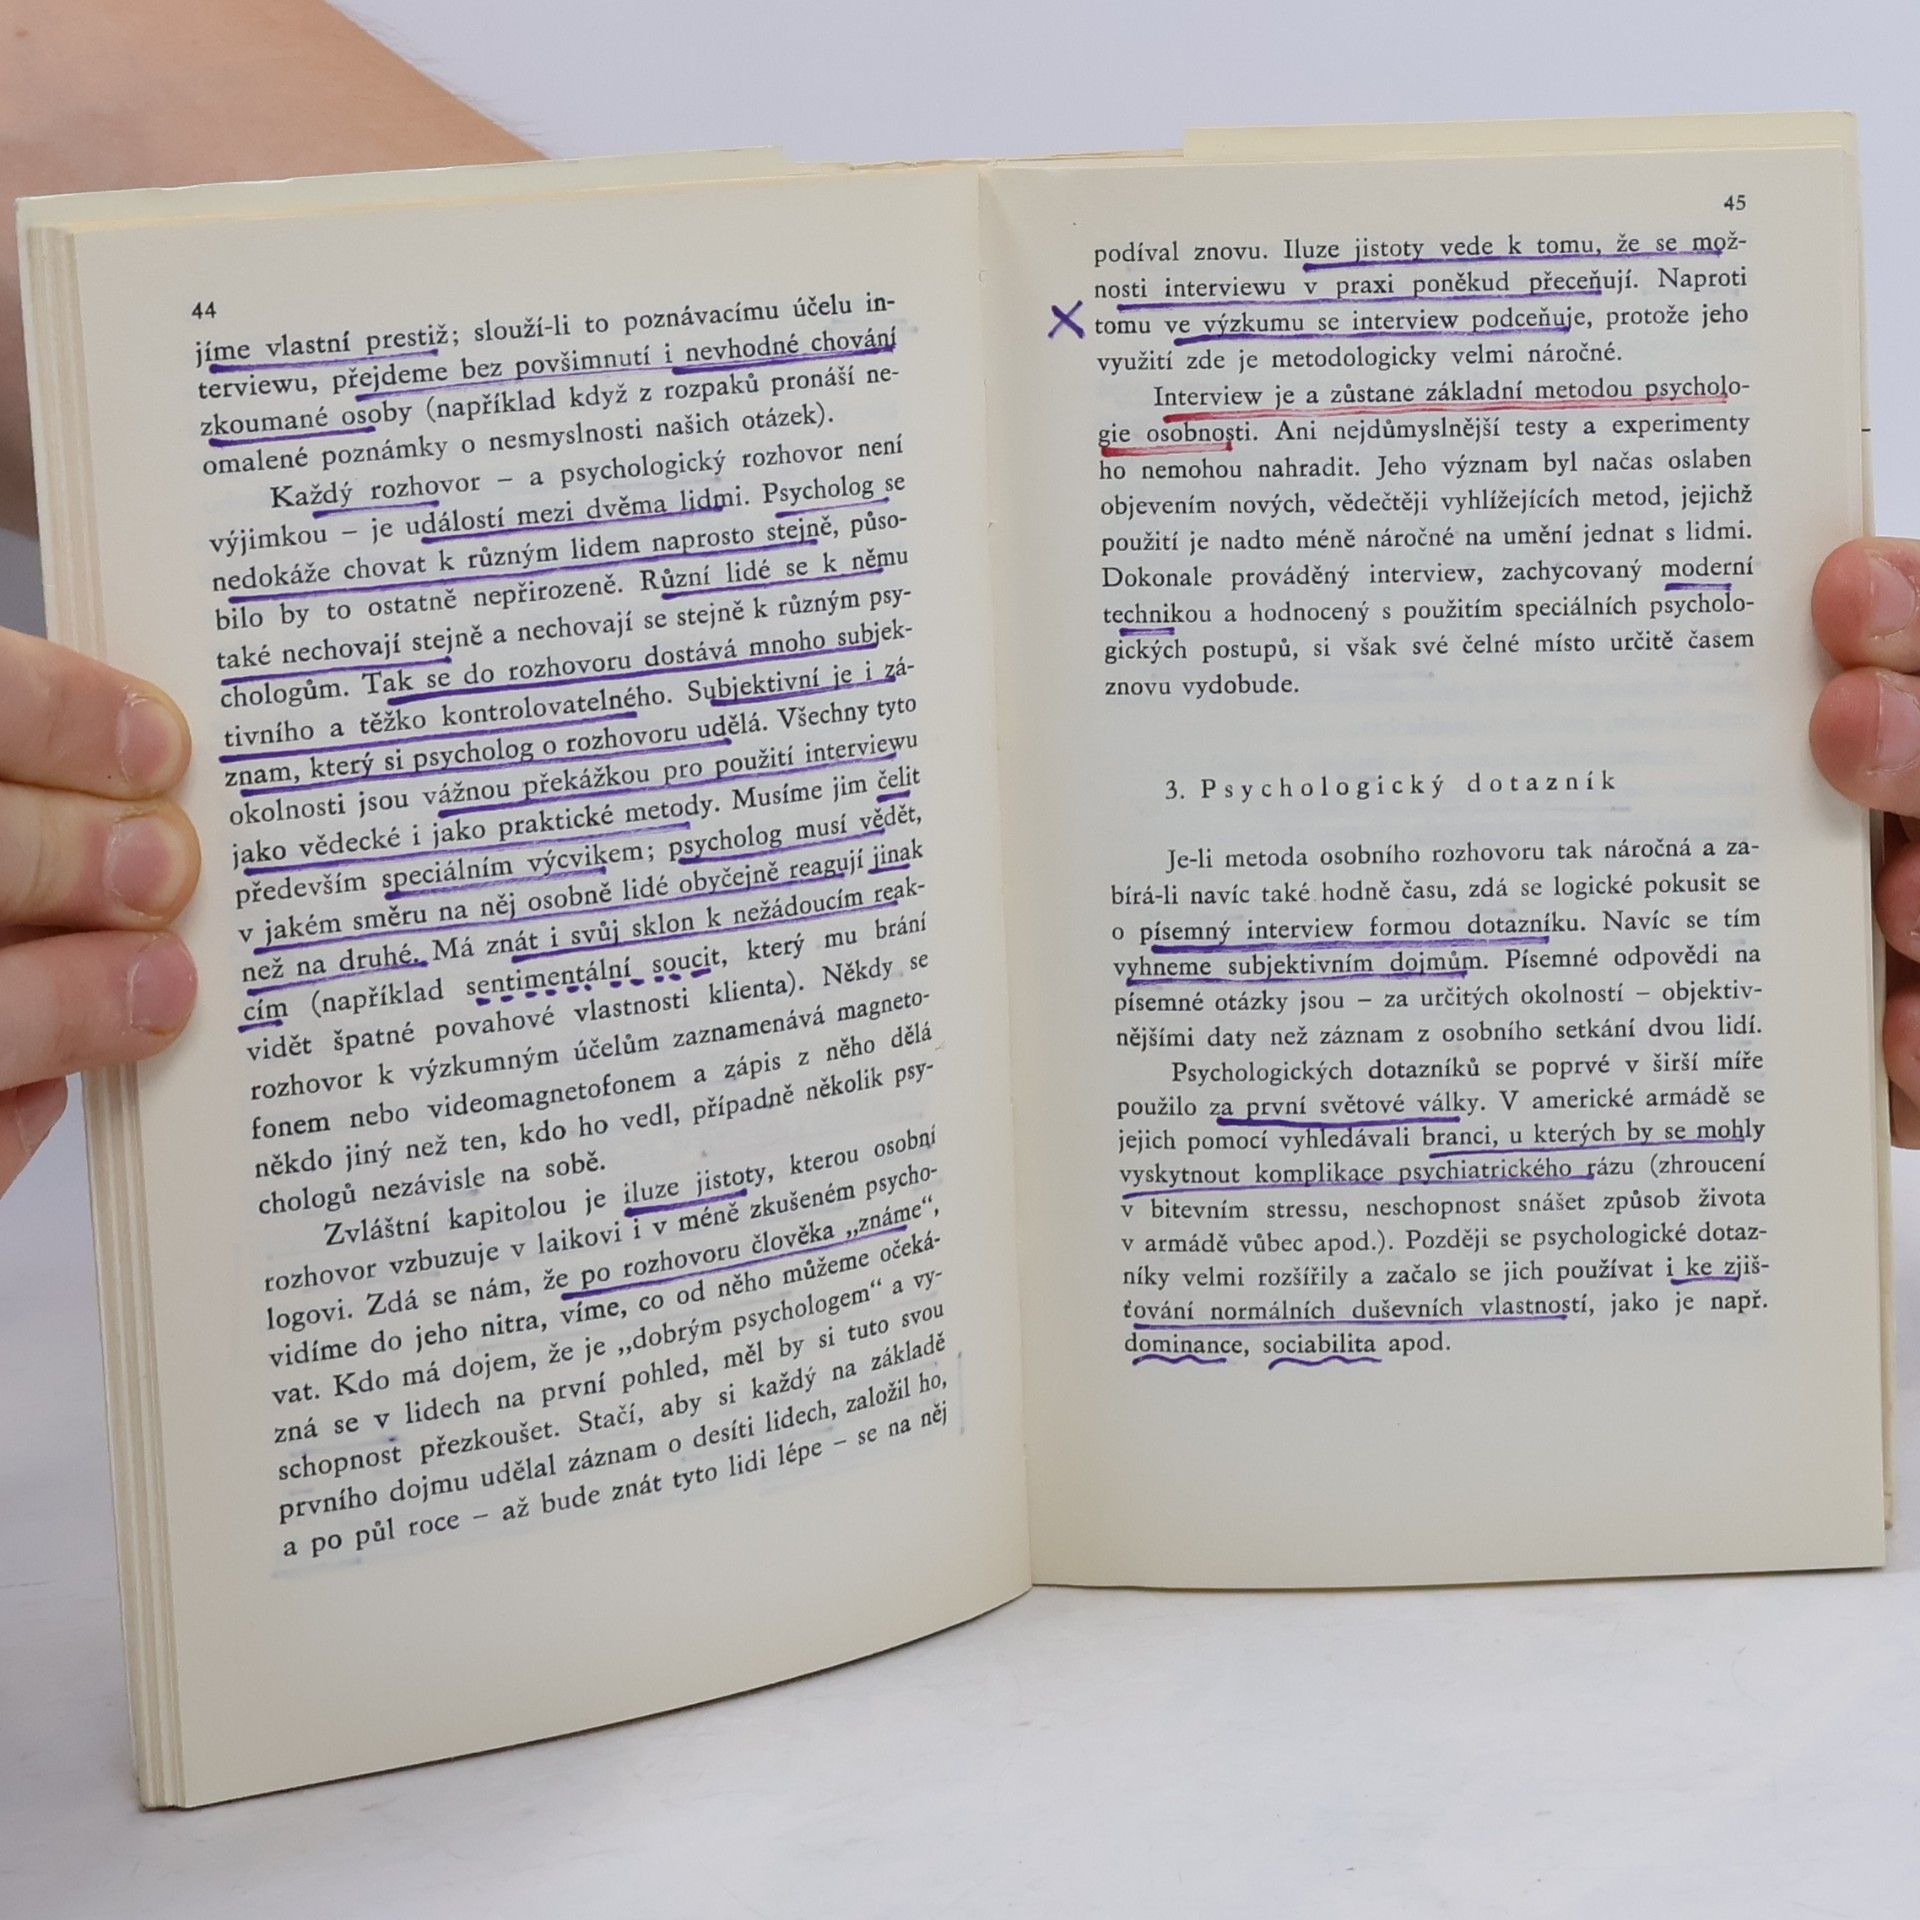 44
jíme vlastní prestiž; slouží-li to poznávacímu účelu in-
terviewu, přejdeme bez povšimnutí i nevhodné chování
zkoumané osoby (například když z rozpaků pronáší ne-
omalené poznámky o nesmyslnosti našich otázek).
Každý rozhovor – a psychologický rozhovor není
výjimkou – je událostí mezi dvěma lidmi. Psycholog se
nedokáže chovat k různým lidem naprosto stejně, půso-
bilo by to ostatně nepřirozeně. Různí lidé se k němu
také nechovají stejně a nechovají se stejně k různým psy-
chologům. Tak se do rozhovoru dostává mnoho subjek-
tivního a těžko kontrolovatelného. Subjektivní je i zá-
znam, který si psycholog o rozhovoru udělá. Všechny tyto
okolnosti jsou vážnou překážkou pro použití interviewu
jako vědecké i jako praktické metody. Musíme jim čelit
především speciálním výcvikem; psycholog musí vědět,
v jakém směru na něj osobně lidé obyčejně reagují jinak
než na druhé. Má znát i svůj sklon k nežádoucím reak-
cím (například sentimentální soucit, který mu brání
vidět špatné povahové vlastnosti klienta). Někdy se
rozhovor k výzkumným účelům zaznamenává magneto-
fonem nebo videomagnetofonem a zápis z něho dělá
někdo jiný než ten, kdo ho vedl, případně několik psy-
chologů nezávisle na sobě.
Zvláštní kapitolou je iluze jistoty, kterou osobní
rozhovor vzbuzuje v laikovi i v méně zkušeném psycho-
logovi. Zdá se nám, že po rozhovoru člověka „známe“,
vidíme do jeho nitra, víme, co od něho můžeme očeká-
vat. Kdo má dojem, že je „dobrým psychologem“ a vy-
zná se v lidech na první pohled, měl by si tuto svou
schopnost přezkoušet. Stačí, aby si každý na základě
prvního dojmu udělal záznam o desíti lidech, založil ho,
a po půl roce – až bude znát tyto lidi lépe – se na něj
45
podíval znovu. Iluze jistoty vede k tomu, že se mož-
nosti interviewu v praxi poněkud přeceňují. Naproti
tomu ve výzkumu se interview podceňuje, protože jeho
využití zde je metodologicky velmi náročné.
Interview je a zůstane základní metodou psycholo-
gie osobnosti. Ani nejdůmyslnější testy a experimenty
ho nemohou nahradit. Jeho význam byl načas oslaben
objevením nových, vědečtěji vyhlížejících metod, jejichž
použití je nadto méně náročné na umění jednat s lidmi.
Dokonale prováděný interview, zachycovaný moderní
technikou a hodnocený s použitím speciálních psycholo-
gických postupů, si však své čelné místo určitě časem
znovu vydobude.
3. Psychologický dotazník
Je-li metoda osobního rozhovoru tak náročná a za-
bírá-li navíc také hodně času, zdá se logické pokusit se
o písemný interview formou dotazníku. Navíc se tím
vyhneme subjektivním dojmům. Písemné odpovědi na
písemné otázky jsou – za určitých okolností – objektiv-
nějšími daty než záznam z osobního setkání dvou lidí.
Psychologických dotazníků se poprvé v širší míře
použilo za první světové války. V americké armádě se
jejich pomocí vyhledávali branci, u kterých by se mohly
vyskytnout komplikace psychiatrického rázu (zhroucení
v bitevním stressu, neschopnost snášet způsob života
v armádě vůbec apod.). Později se psychologické dotaz-
níky velmi rozšířily a začalo se jich používat i ke zjiš-
ťování normálních duševních vlastností, jako je např.
dominance, sociabilita apod.